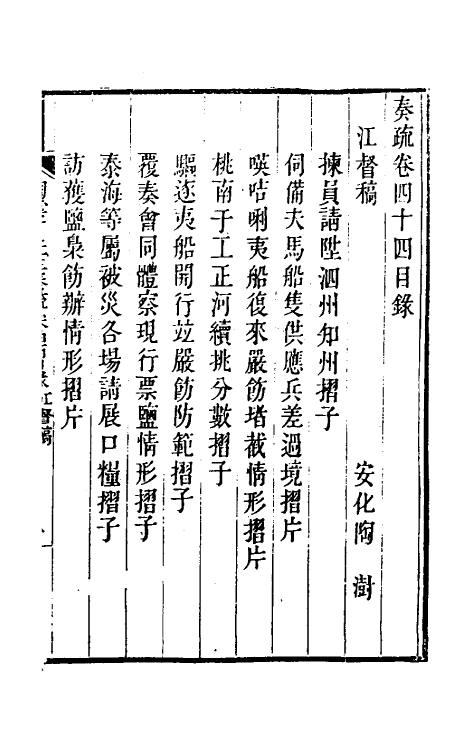 奏疏卷四十四目錄
江督稿
安化陶 澍
揀員請陞泗州知州摺子
伺備夫馬船隻供應兵差過境摺片
暎咭唎夷船復來嚴飭堵截情形摺片
桃南于工正河續挑分數摺子
驅逐夷船開行竝嚴飭防範摺子
覆奏會同體察現行票鹽情形摺子
泰海等屬被災各場請展口糧摺子
訪獲鹽梟飭辦情形摺片
江督稿